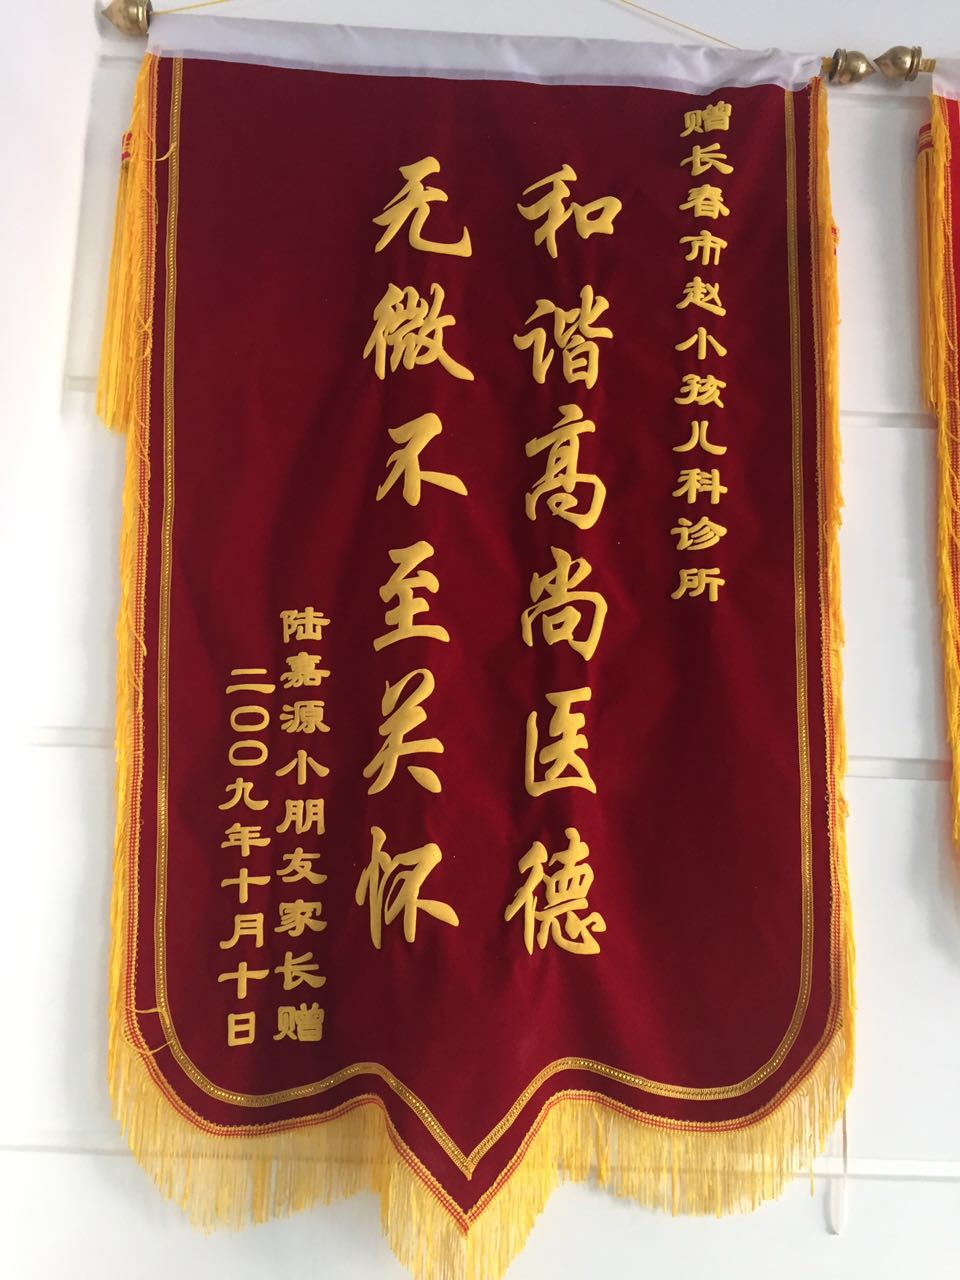 赠长春市赵小孩儿科诊所
和谐高尚医德
无微不至关怀
陆嘉源小朋友家长赠
二〇〇九年十月十日